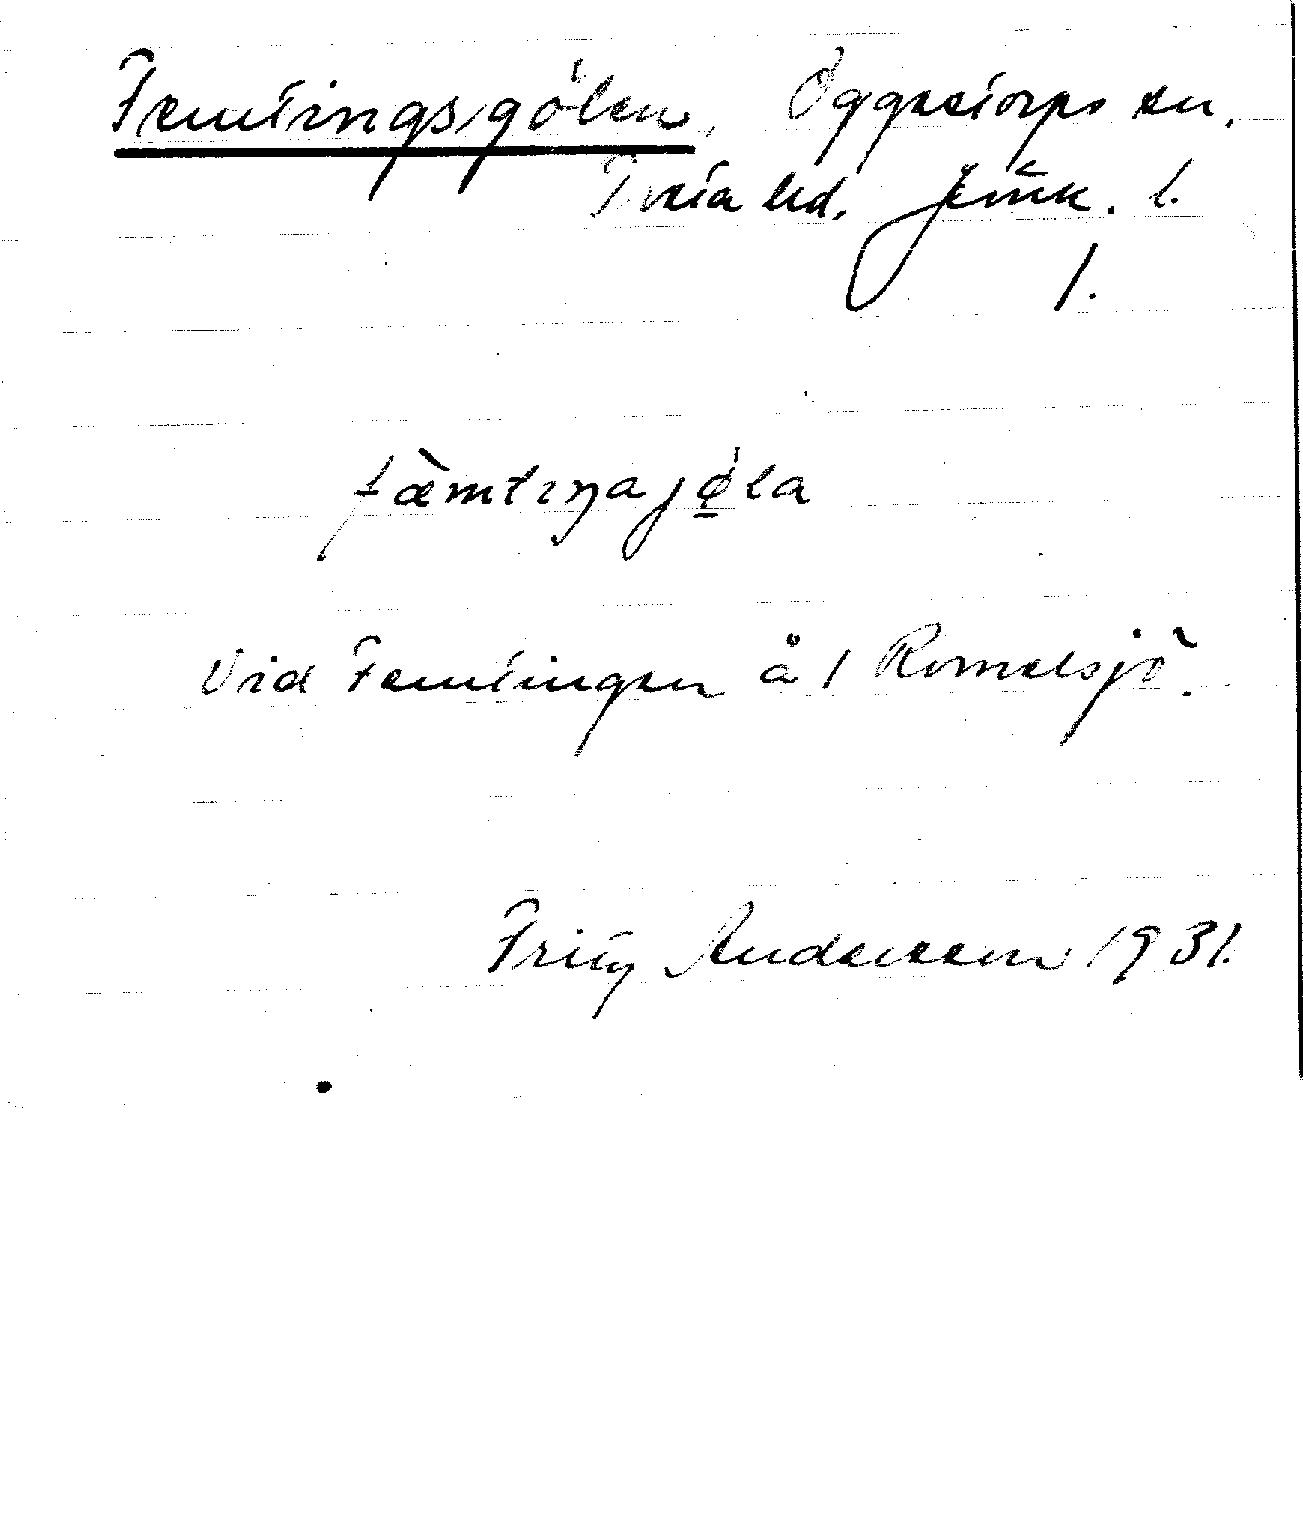 Femtingsgölen, Öggestorps sn.
Tveta hd. Jönk. l.
1.
fæ̀mtıŋajø̣la
Vid Femtingen å 1 Romelsjö.
Fritz Andersson 1931.